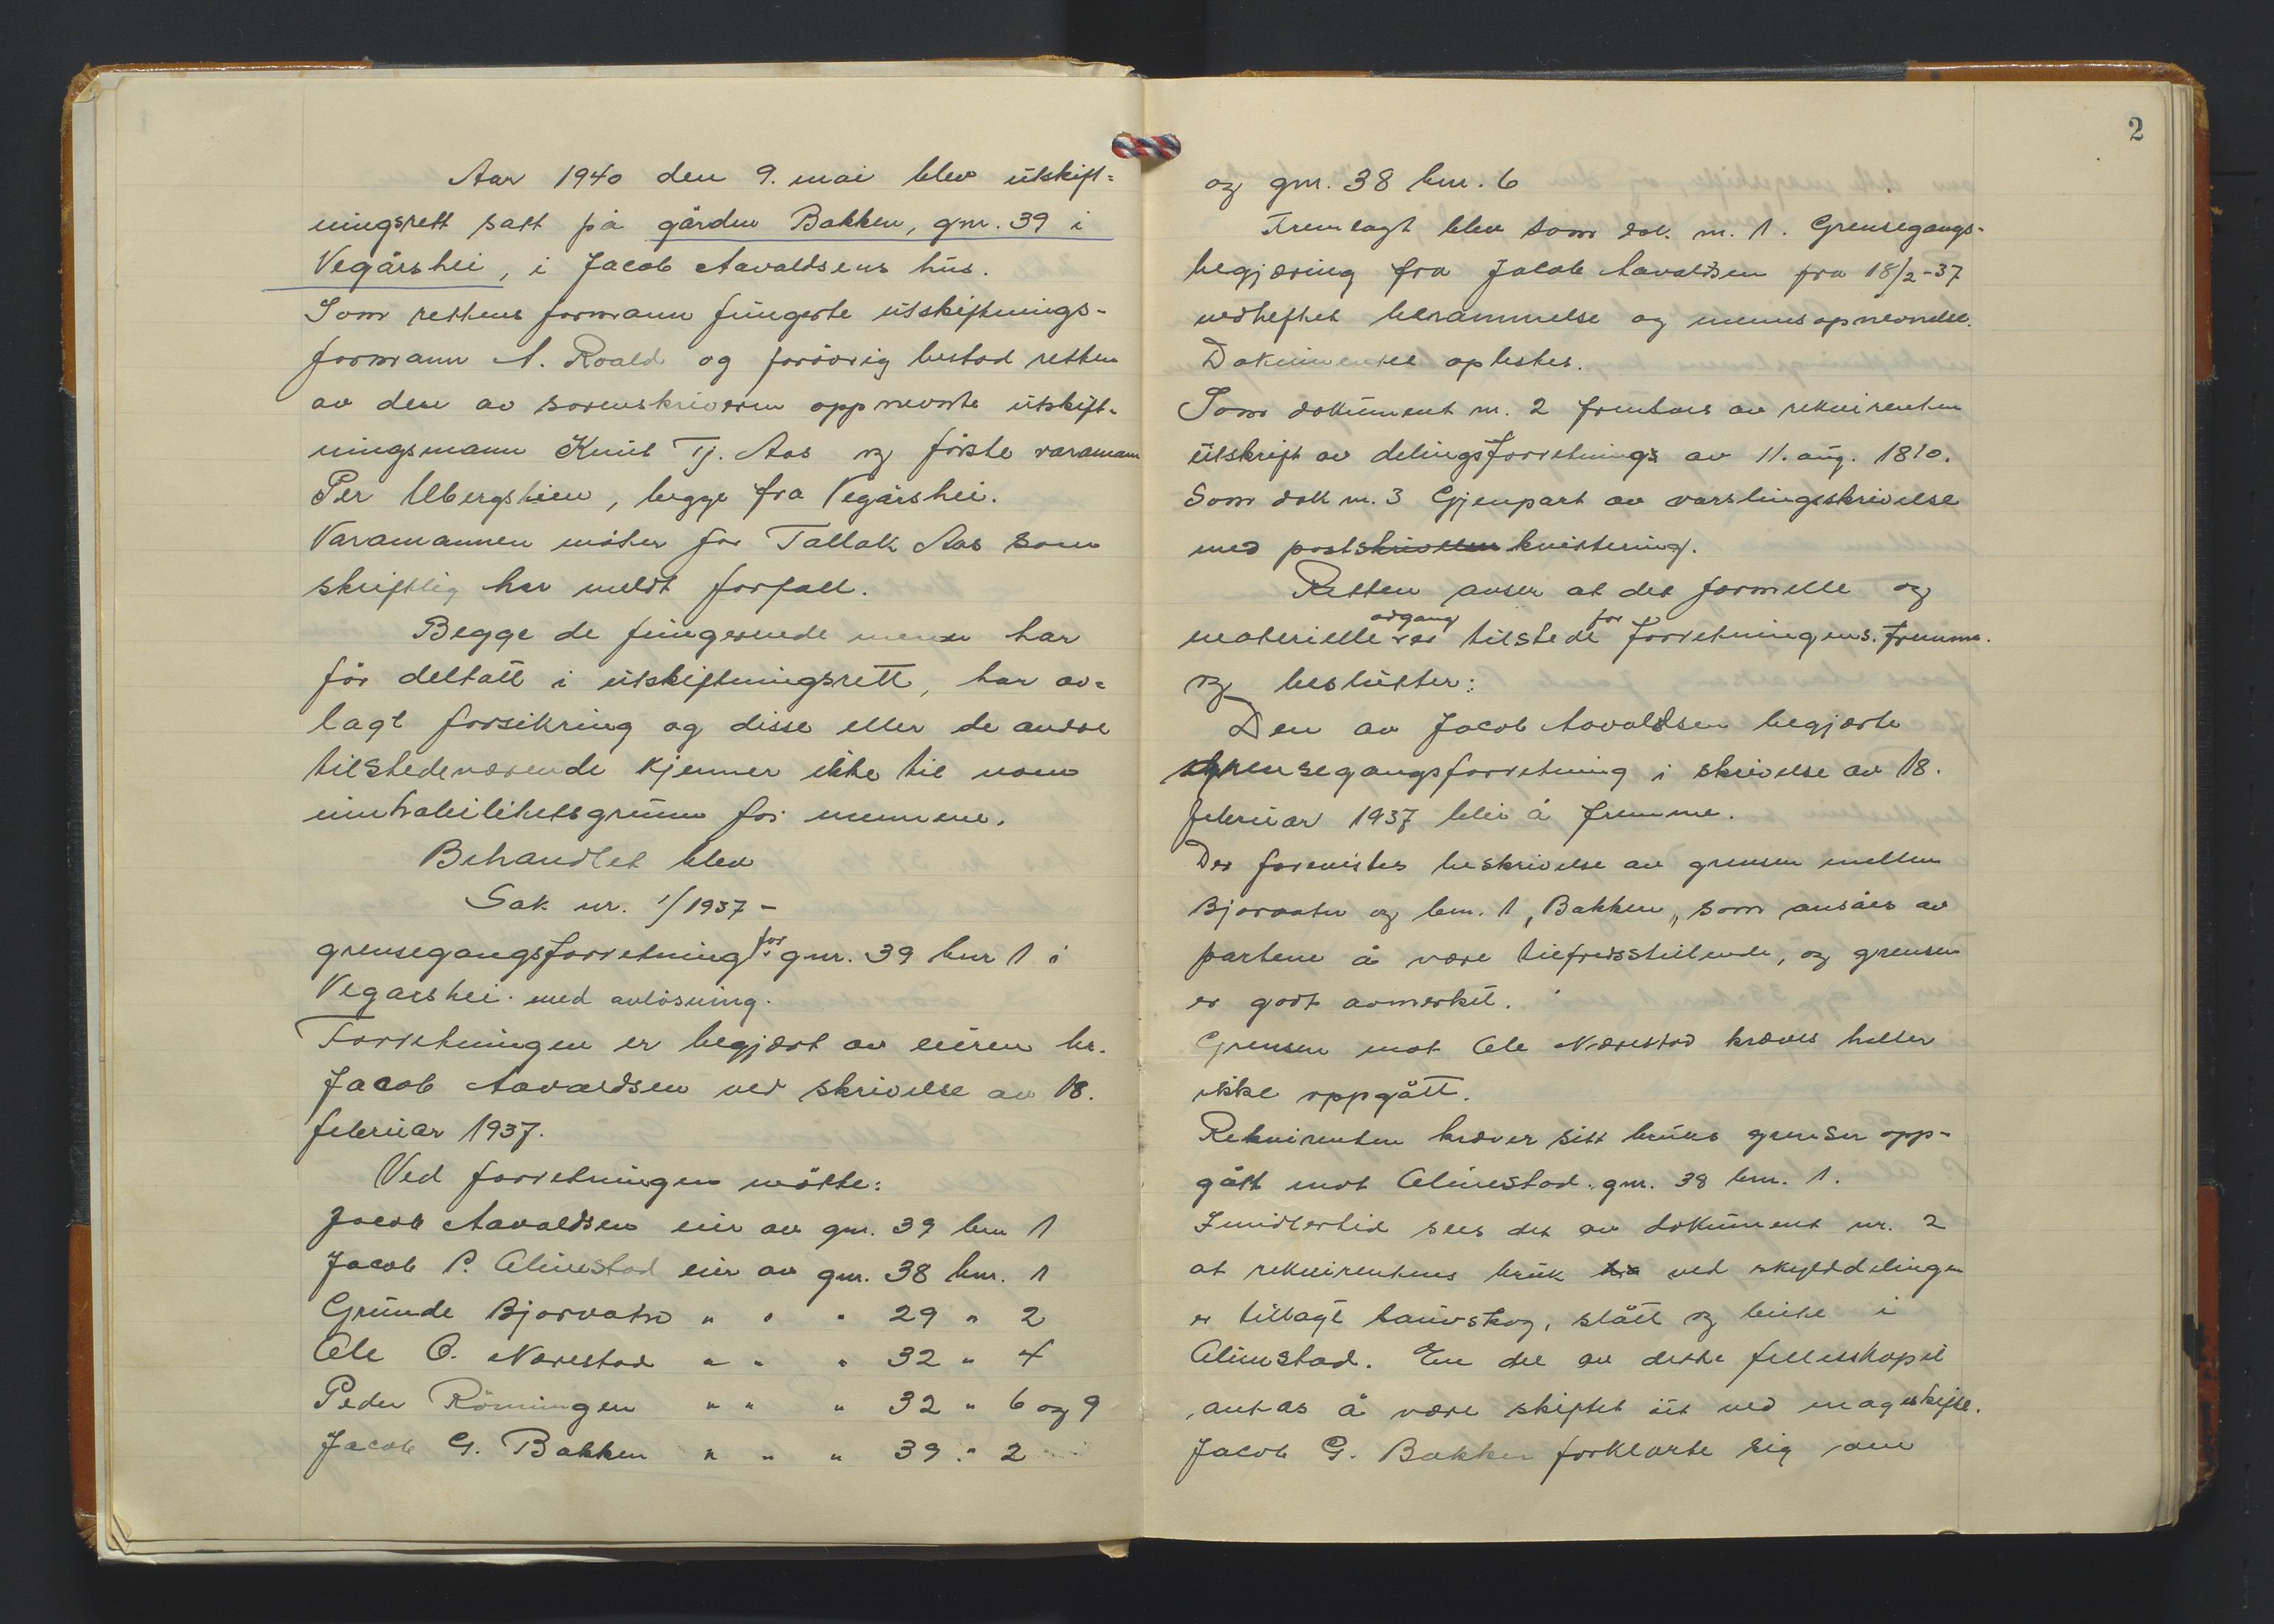 Aar 1940 den 9. mai blev utskift-
ningsrett satt på gården Bakken, gnr. 39 i
Vegårshei, i Jacob Aavaldsens hus.
Som rettens formann fungerte utskiftnings-
formann A. Roald og forövrig bestod retten
av den av sorenskriveren oppnevnte utskift-
ningsmann Knut Tj. Aas og förste varamann
Per Ubergslien, begge fra Vegårshei.
Varamannen möter for Tallak Aas som
skriftlig har meldt forfall.
Begge de fungerende menn har
för deltatt i utskiftningsrett, har av-
lagt forsikring og disse eller de andre
tilstedeværende kjenner ikke til noen
inhabilitetsgrunn for mennene.
Behandlet blev
Sak nr. 1/1937 -
grensegangsforretning for gnr. 39 bnr 1 i
Vegårshei med avlösning.
Forretningen er begjært av eieren hr.
Jacob Aavaldsen ved skrivelse av 18.
februar 1937.
Ved forretningen mötte:
Jacob Aavaldsen eier av gnr. 39 bnr 1
Jacob P. Alinestad eier av gnr. 38 bnr. 1
Grunde Bjorvatn " " " 29 " 2
Ole O. Nærestad " " " 32 " 4
Peder Rönningen " " " 32 " 6 og 9
Jacob G. Bakken " " " 39 " 2
2
og gnr. 38 bnr. 6
Fremlagt blev som dok. nr. 1. Grensegangs-
begjæring fra Jacob Aavaldsen fra 18/2-37
vedheftet berammelse og mennsopnevnelse.
Dokumentet oplestes.
Som dokument nr. 2 fremlaes av rekvirenten
utskrift av delingsforretnings av 11. aug. 1810.
Som dok nr. 3 Gjenpart av varslingsskrivelse
med postskrivelse kvittering.
Retten anser at det formelle og
materielle adgang var tilstede for forretningens fremme.
og beslutter:
Den av Jacob Aavaldsen begjærte
grensegangsforretning i skrivelse av 18.
februar 1937 blir å fremme.
Der forevistes beskrivelse av grensen mellem
Bjorvatn og bnr. 1 "Bakken" som ansåes av
partene å være tilfredsstillende, og grensen
er godt avmerket.
Grensen mot Ole Nærestad kræves heller
ikke oppgått.
Rekvirenten kræver sitt bruks grenser opp-
gått mot Alinestad gnr. 38 bnr. 1.
Imidlertid sees det av dokument nr. 2
at rekvirentens bruk ved skylddelingen
er tillagt lauvskog, slått og beite i
Alinestad. En del av dette fellesskapet
antas å være skiftet ut ved mageskifte.
Jacob G. Bakken forklarte sig om